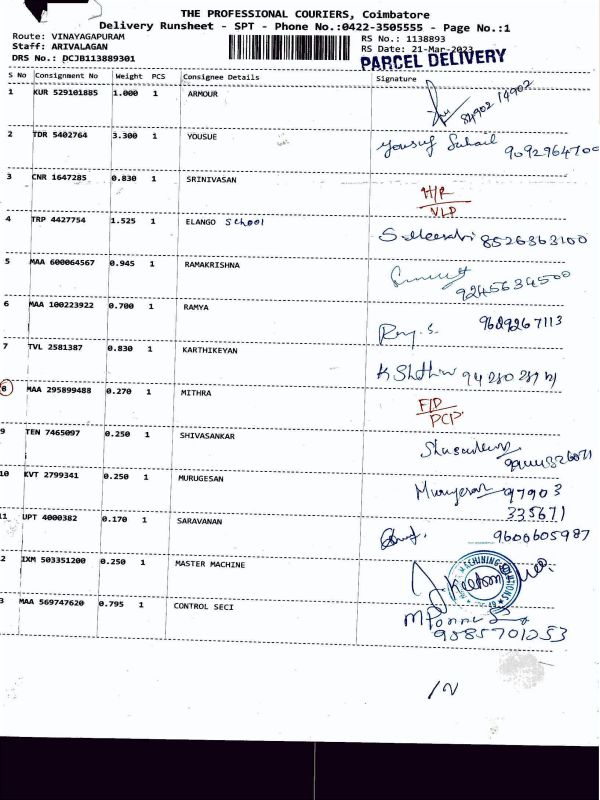 THE PROFESSIONAL COURIERS, Coimbatore
Delivery Runsheet - SPT - Phone No.:0422-3505555 - Page No.:1
Route: VINAYAGAPURAM RS No.: 1138893
Staff: ARIVALAGAN RS Date: 21-Mar-2023
DRS No.: DCJB113889301 PARCEL DELIVERY
S No Consignment No Weight PCS Consignee Details Signature
1 KUR 529101885 1.000 1 ARMOUR
84902 14902
2 TDR 5402764 3.300 1 YOUSUE
Yousuf Suhail 9092964700
3 CNR 1647285 0.830 1 SRINIVASAN
H/R
VLP
4 TRP 4427754 1.525 1 ELANGO School
8526363100
5 MAA 600064567 0.945 1 RAMAKRISHNA
9245634500
6 MAA 100223922 0.700 1 RAMYA
9629267113
7 TVL 2581387 0.830 1 KARTHIKEYAN
8 MAA 295899488 0.270 1 MITHRA
F/D
PCP
9 TEN 7465097 0.250 1 SHIVASANKAR
10 KVT 2799341 0.250 1 MURUGESAN
Murugesan 97903
335671
11 UPT 4000382 0.170 1 SARAVANAN
9600605987
2 IXM 503351200 0.250 1 MASTER MACHINE
3 MAA 569747620 0.795 1 CONTROL SECI
9585701253